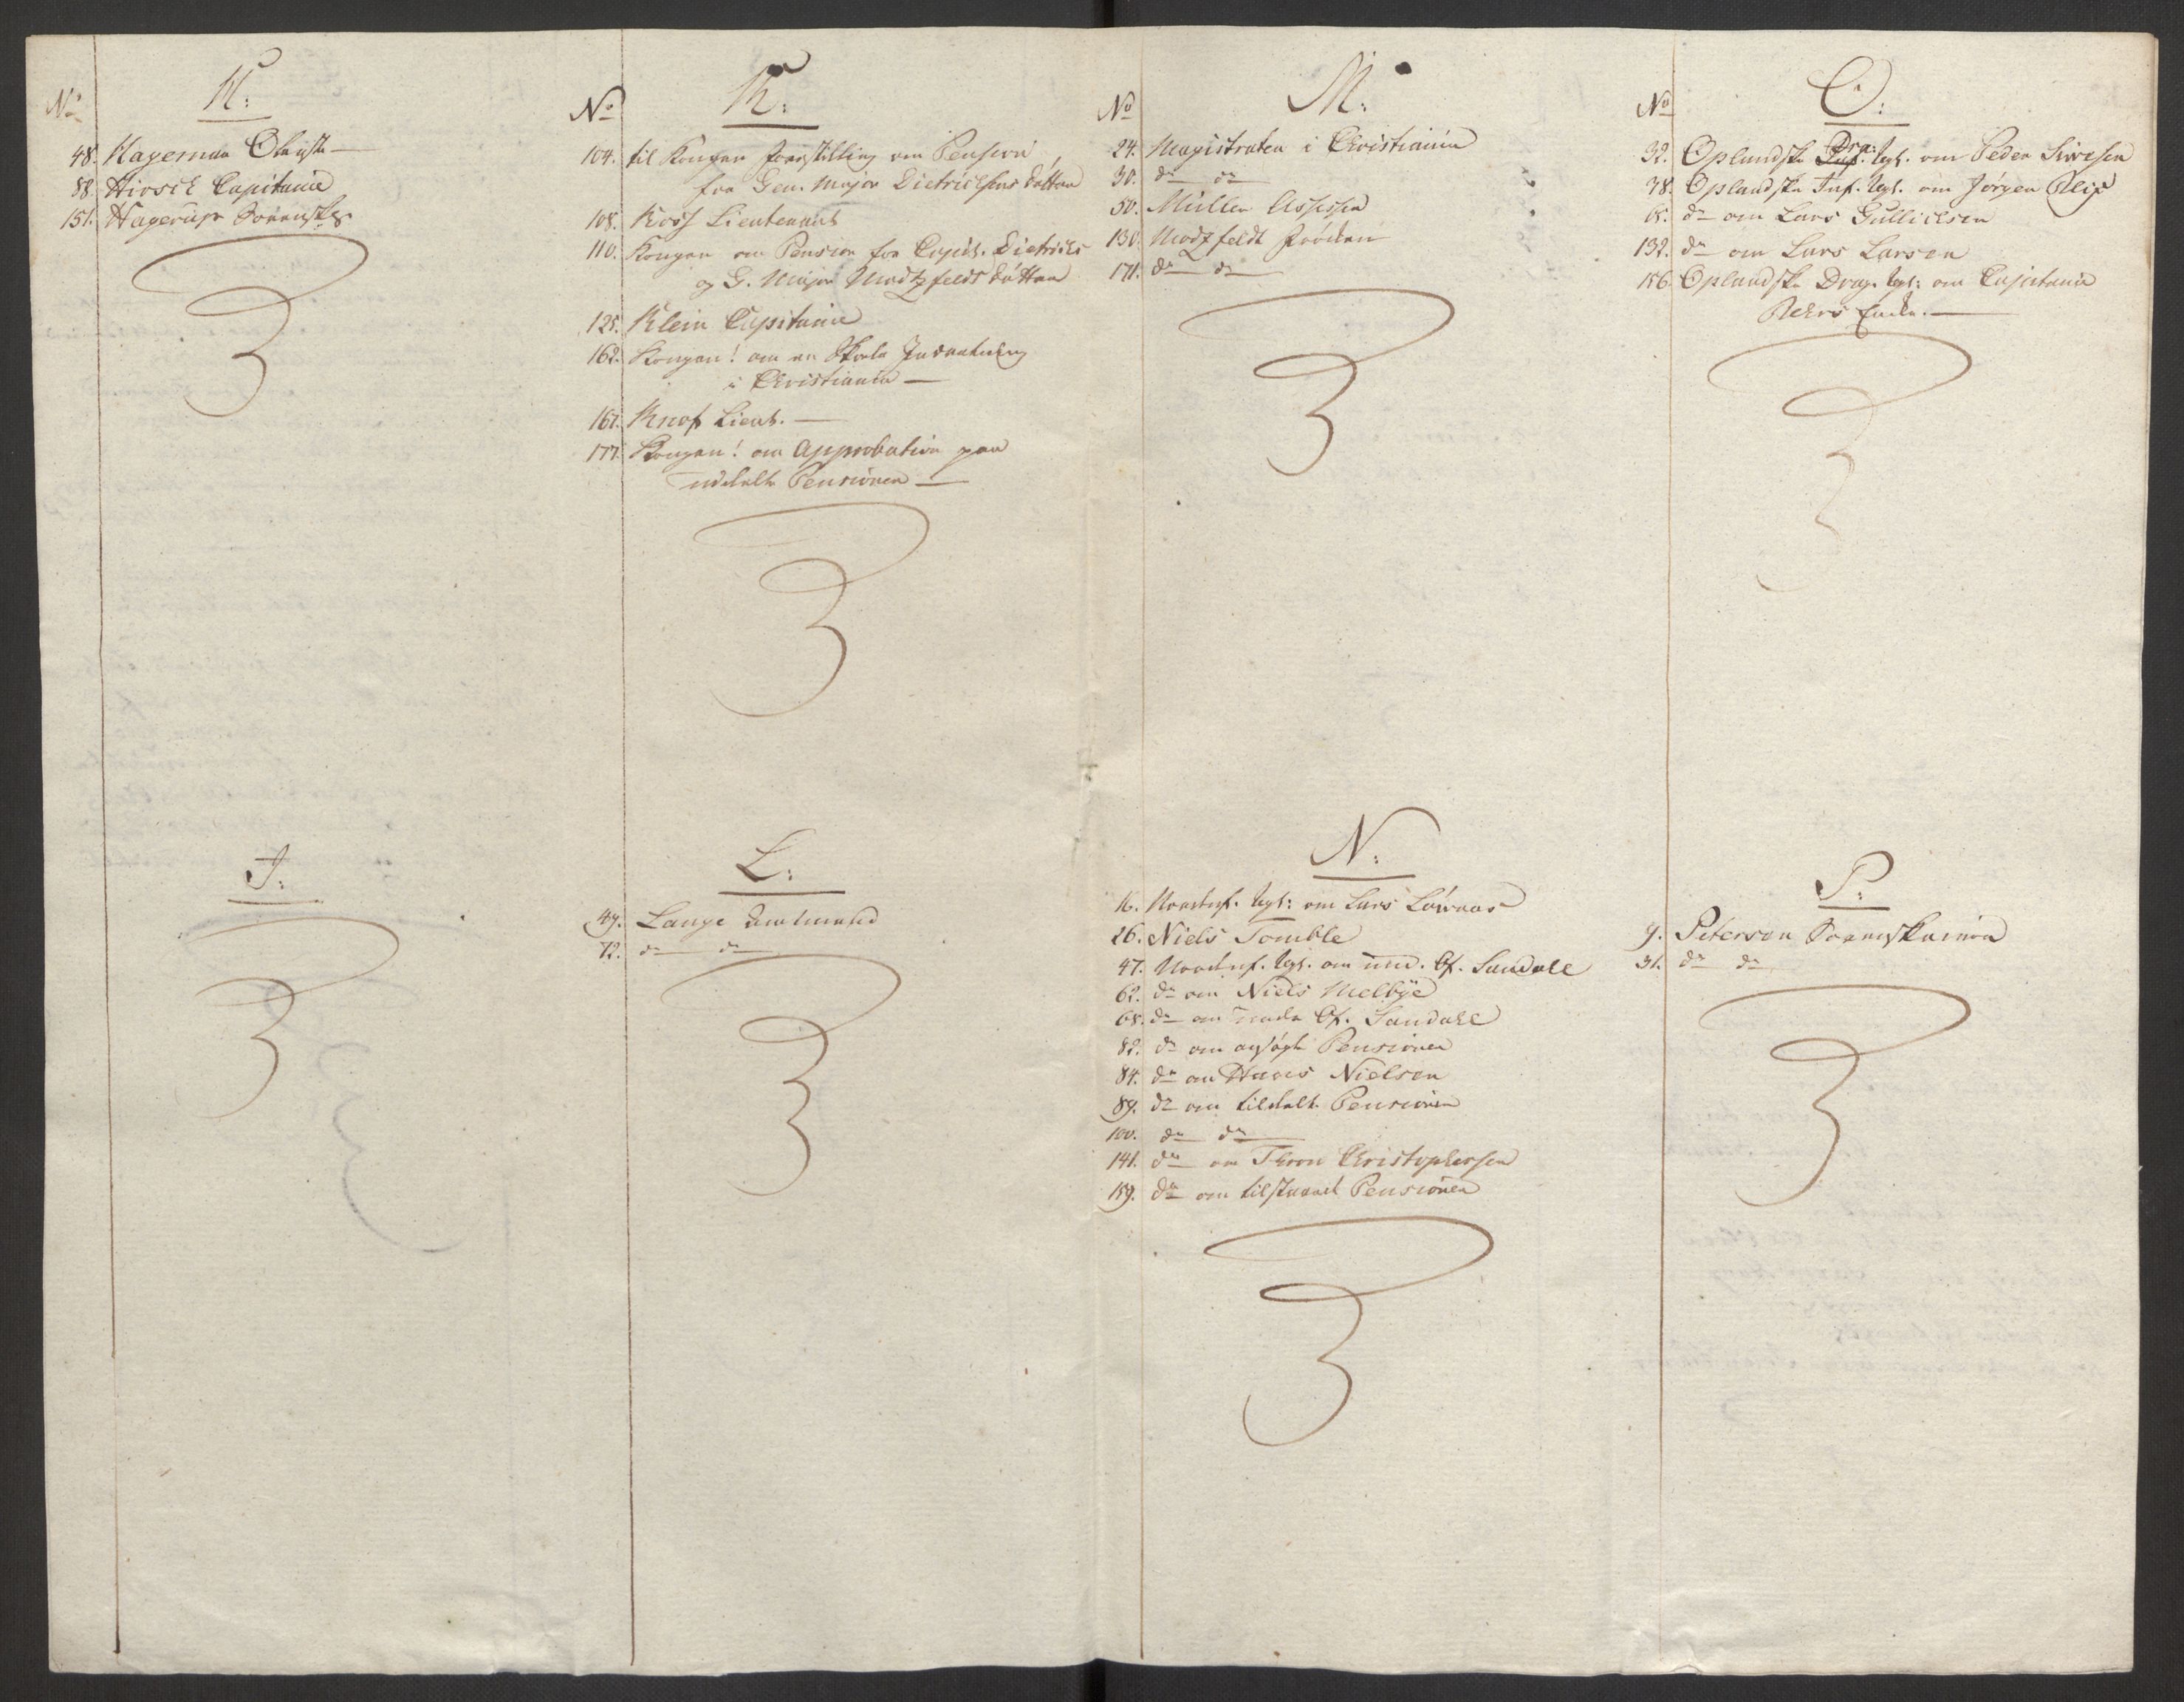 No
H:
48. Hageman Oberste
88. Hirsch Capitaine
151. Hagerup
I:
No
K:
104. til Kongen Forestilling om Pension
for Gen. Major Dietrichsons Døttre
108. Koss Lieutenant
110. Kongen om Pension for Capit. Dietrichs
og G. Major Motzfeldts Døttre
125. Klein Capitaine
162. Kongen! om en Skole Indretning
i Christiania
167. Knof Lieut.
177. Kongen! om Approbation paa
uddeelte Pensioner
L:
49. Lange Amtmand
72. do do
No
M:
24. Magistraten i Christiania
30. do do
50. Müller Assessor
130. Motzfeldt Frøken
171. do do
N:
16. Nordenf. Regt: om Lars
26. Niels Tomble
47. Nordenf. Regt. om und. Of. Sundahl
62. do om Niels Melbye
68. do om Under Of. Sandahl
82. do om ansøgte Pensioner
84. do om Hans Nielsen
89. do om tildeelt Pensioner
100. do do
141. do om Thron Christophersen
159. do om tilstaaet Pensioner
No
O:
32. Oplandske Drag: Regt. om Peder Siversen
38. Oplandske Inf. Regt. om Jørgen
65. do om Lars Gullichsen
132. do om Lars Larsen
156. Oplandske Drag. Regt: om Capitaine
Enke.
P:
9. Peterson
31. do do